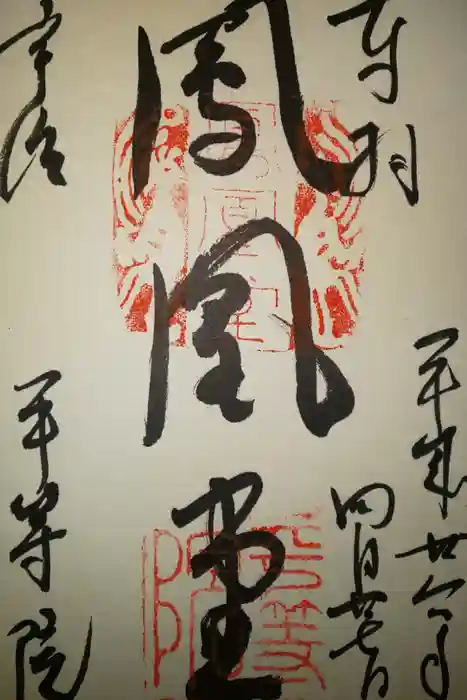 奉拝
平成廿八年
四月廿七日
鳳凰堂
宇治
平等院